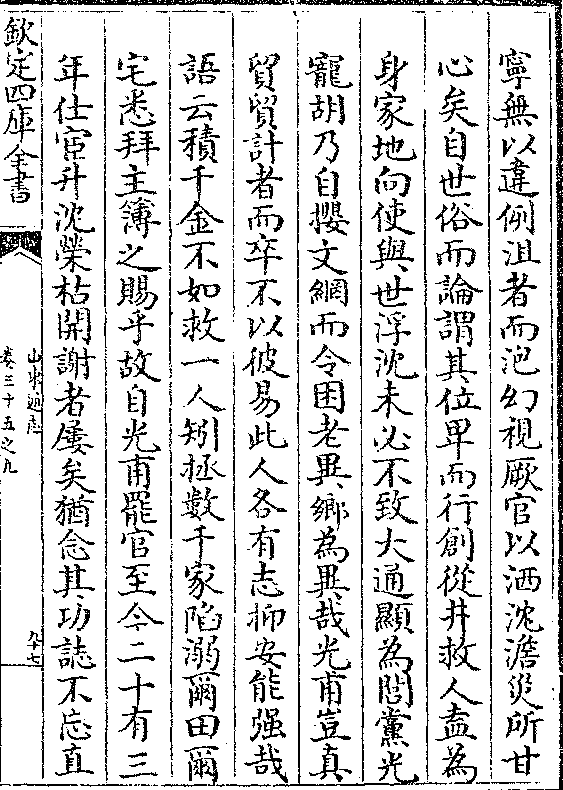 寧無以違例沮者而泡幻視厥官以洒沈澹災所甘
心矣自世俗而論謂其位卑而行創從井救人盍為
身家地向使與世浮沈未必不致大通顯為閭黨光
寵胡乃自攖文網而令困老異鄉為異哉光甫豈真
貿貿計者而卒不以彼易此人各有志抑安能强哉
語云積千金不如救一人矧拯數千家陷溺爾田爾
宅悉拜主簿之賜乎故自光甫罷官至今二十有三
年仕宦升沈榮枯開謝者屢矣猶念其功誌不忘直
欽定四庫全書
山東通志
卷三十五之九
九十七